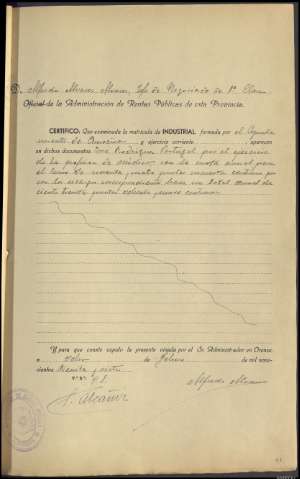 D. Alfredo Alvarez Alvarez, Jefe de Negociado de 1ª Clase
Oficial de la Administración de Rentas Públicas de esta Provincia.
CERTIFICO: Que examinada la matrícula de INDUSTRIAL formada por el Ayunta
miento de y ejercicio corriente, aparece
en dichos documentos Jose Rodriguez Portugal por el ejercicio
de la profesion de médico con la cuota anual para
el Tesoro de noventa y cuatro pesetas cincuenta centimos que
con los recargos correspondientes hace un total anual de
ciento treinta pesetas centimos
Y para que conste expido la presente visada por el Sr. Administrador en Orense
a ocho de Febrero de mil nove-
cientos treinta y siete
V.º B.º
Alfredo Alvarez